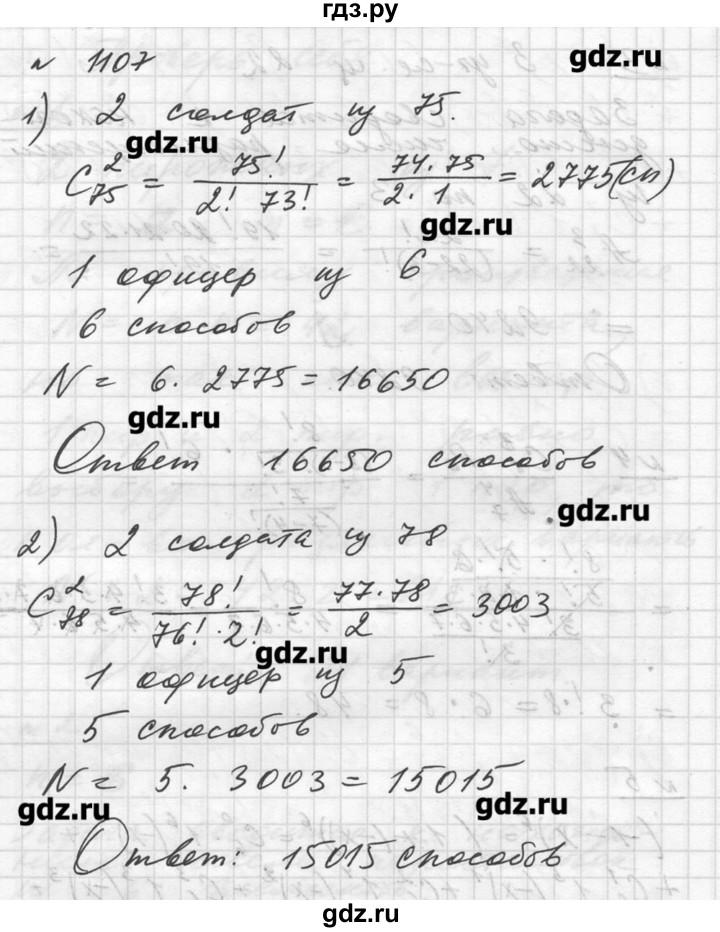 гдз.ру
№ 1107
gdz.ru
1) 2 солдат из 75.
gdz.ru
C²₇₅ = 75! / (2! 73!) = (74·75) / (2·1) = 2775 (сп)
gdz.ru
1 офицер из 6
6 способов
N = 6. 2775 = 16650
gdz.ru
Ответ 16650 способов
gdz.ru
2) 2 солдата из 78
C²₇₈ = 78! / (76!·2!) = (77·78) / 2 = 3003
gdz.ru
1 офицер из 5
5 способов
N = 5. 3003 = 15015
gdz.ru
gdz.ru
Ответ: 15015 способов
gdz.ru